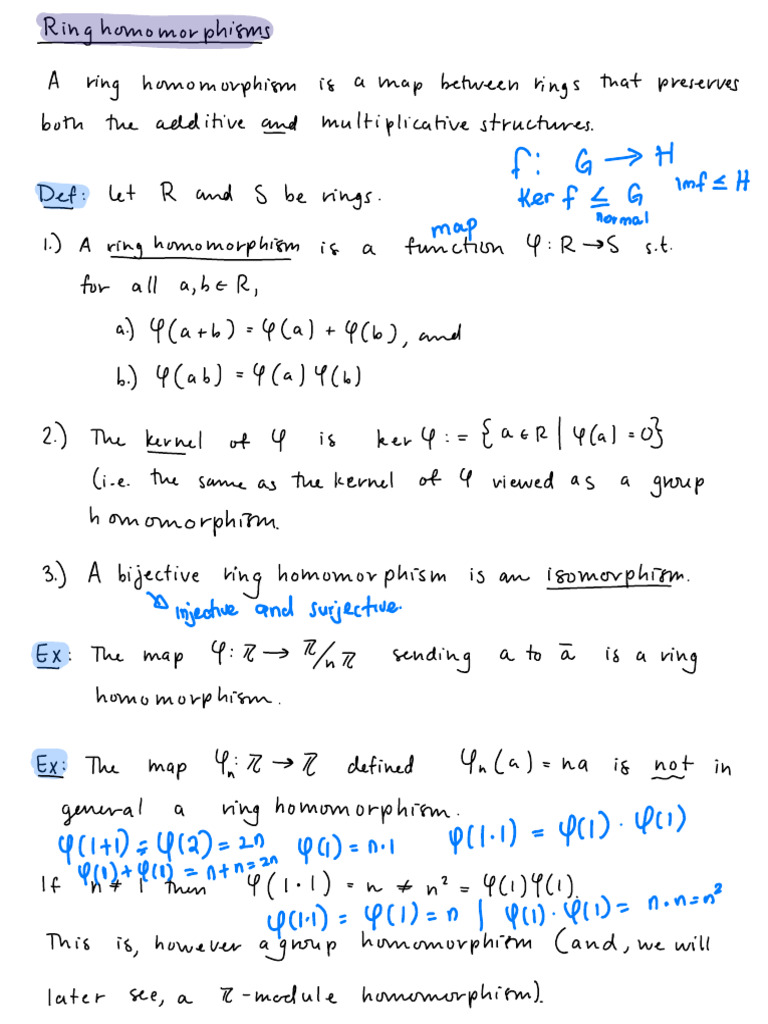 Ring homomorphisms
A ring homomorphism is a map between rings that preserves
both the additive and multiplicative structures.
f: G → H
Def: Let R and S be rings.
Ker f ≤ G
normal
Imf ≤ H
map
1.) A ring homomorphism is a function φ: R → S s.t.
for all a, b ∈ R,
a.) φ(a+b) = φ(a) + φ(b), and
b.) φ(ab) = φ(a) φ(b)
2.) The kernel of φ is ker φ := {a ∈ R | φ(a) = 0}
(i.e. the same as the kernel of φ viewed as a group
homomorphism.
3.) A bijective ring homomorphism is an isomorphism.
↘ injective and surjective.
Ex: The map φ: ℤ → ℤ/nℤ sending a to ā is a ring
homomorphism.
Ex: The map φₙ: ℤ → ℤ defined φₙ(a) = na is not in
general a ring homomorphism.
φ(1+1) = φ(2) = 2n φ(1) = n·1 φ(1·1) = φ(1)·φ(1)
φ(1)+φ(1) = n+n = 2n
If n ≠ 1 then φ(1·1) = n ≠ n² = φ(1)φ(1).
φ(1·1) = φ(1) = n | φ(1)·φ(1) = n·n = n²
This is, however a group homomorphism (and, we will
later see, a ℤ-module homomorphism).